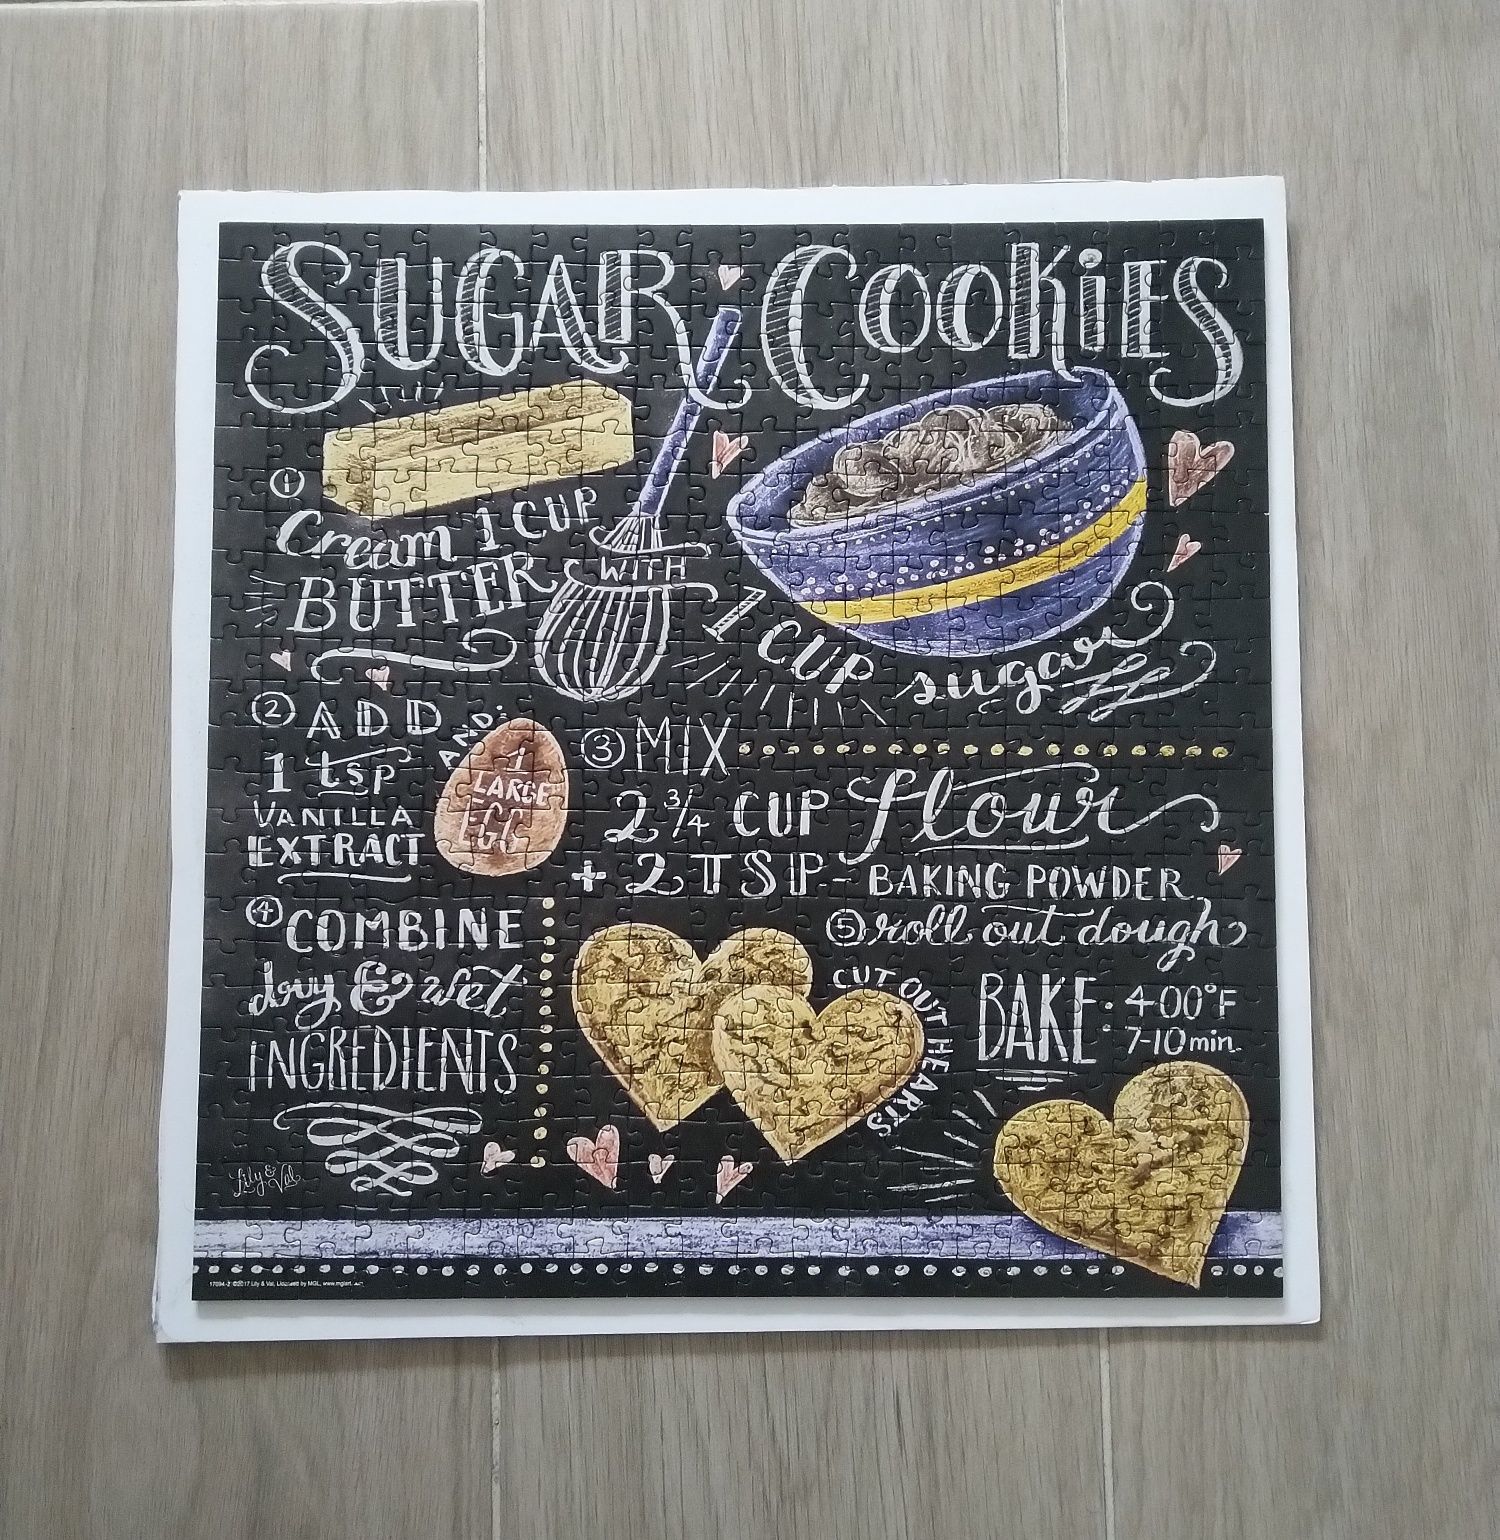 SUGAR COOKIES
1
Cream 1 CUP
BUTTER
WITH
1 CUP sugar
2 ADD
1 tsp
VANILLA
EXTRACT
AND:
1
LARGE
EGG
3 MIX
2 3/4 CUP flour
+ 2 TSP- BAKING POWDER
4 COMBINE
dry & wet
INGREDIENTS
5 roll out dough
CUT OUT HEARTS
BAKE: 400°F
7-10 min.
Lily & Val
©2017 Lily & Val, Licensed by MGL,